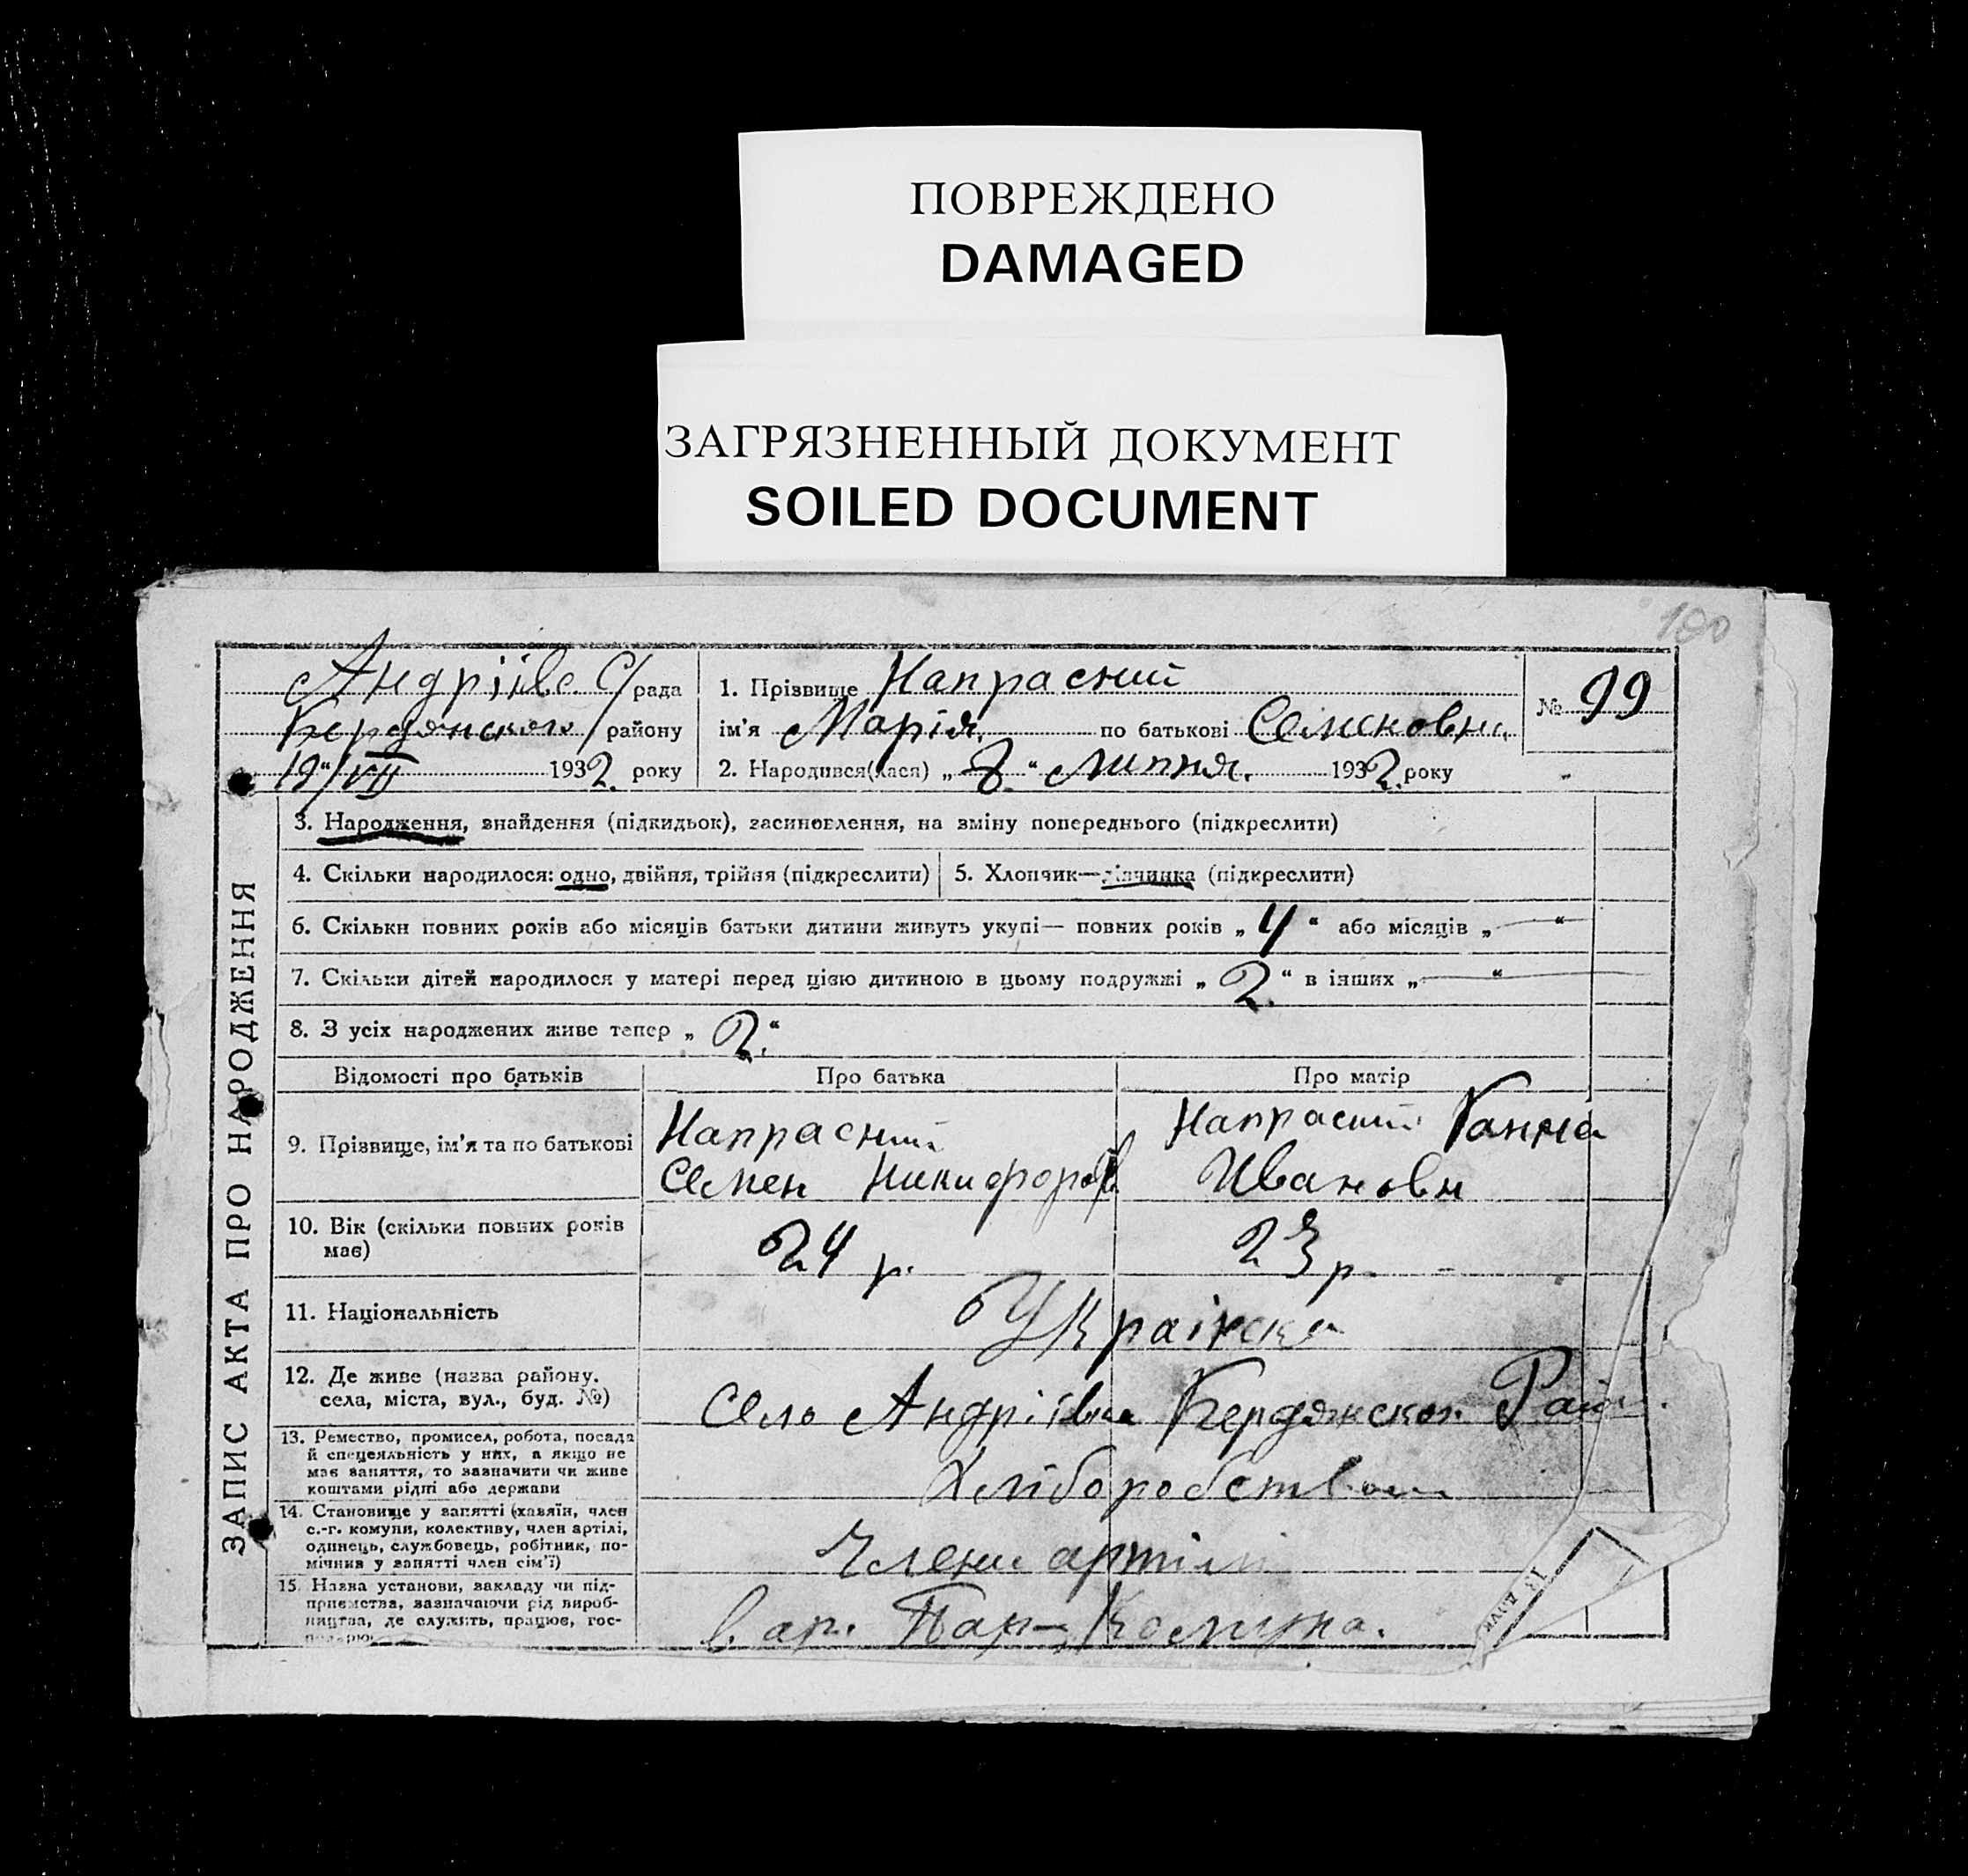 ПОВРЕЖДЕНО
DAMAGED
ЗАГРЯЗНЕННЫЙ ДОКУМЕНТ
SOILED DOCUMENT
100
ЗАПИС АКТА ПРО НАРОДЖЕННЯ
Андріївс С/рада
Бердянського району
19"/VII 1932 року
1. Прізвище Напрасний
ім'я Марія по батькові Семеновна
2. Народився(лася) „8“ липня 1932 року
№ 99
3. Народження, знайдення (підкидьок), засиновлення, на зміну попереднього (підкреслити)
4. Скільки народилося: одно, двійня, трійня (підкреслити)
5. Хлопчик—дівчинка (підкреслити)
6. Скільки повних років або місяців батьки дитини живуть укупі— повних років „4“ або місяців „—“
7. Скільки дітей народилося у матері перед цією дитиною в цьому подружжі „2.“ в інших „—“
8. З усіх народжених живе тепер „2.“
Відомості про батьків
Про батька
Про матір
9. Прізвище, ім'я та по батькові
Напрасний
Семен Никифоров
Напрасний Ганна
Ивановн
10. Вік (скільки повних років
має)
24 р.
23 р.
11. Національність
Українська
12. Де живе (назва району.
села, міста, вул., буд. №)
Село Андріївка Бердянског Район.
13. Ремество, промисел, робота, посада
й спецеяльність у них, а якщо не
має заняття, то зазначити чи живе
коштами рідні або держави
Хліборобством
14. Становище у занятті (хазяїн, член
с.-г. комуни, колективу, член артілі,
одинець, службовець, робітник, по-
мічник у занятті член сім'ї)
Члени артілі
15. Назва установи, закладу чи під-
приємства, зазначаючи рід вироб-
ництва, де служить, працює, гос-
в. ар. Пар-Комуна.